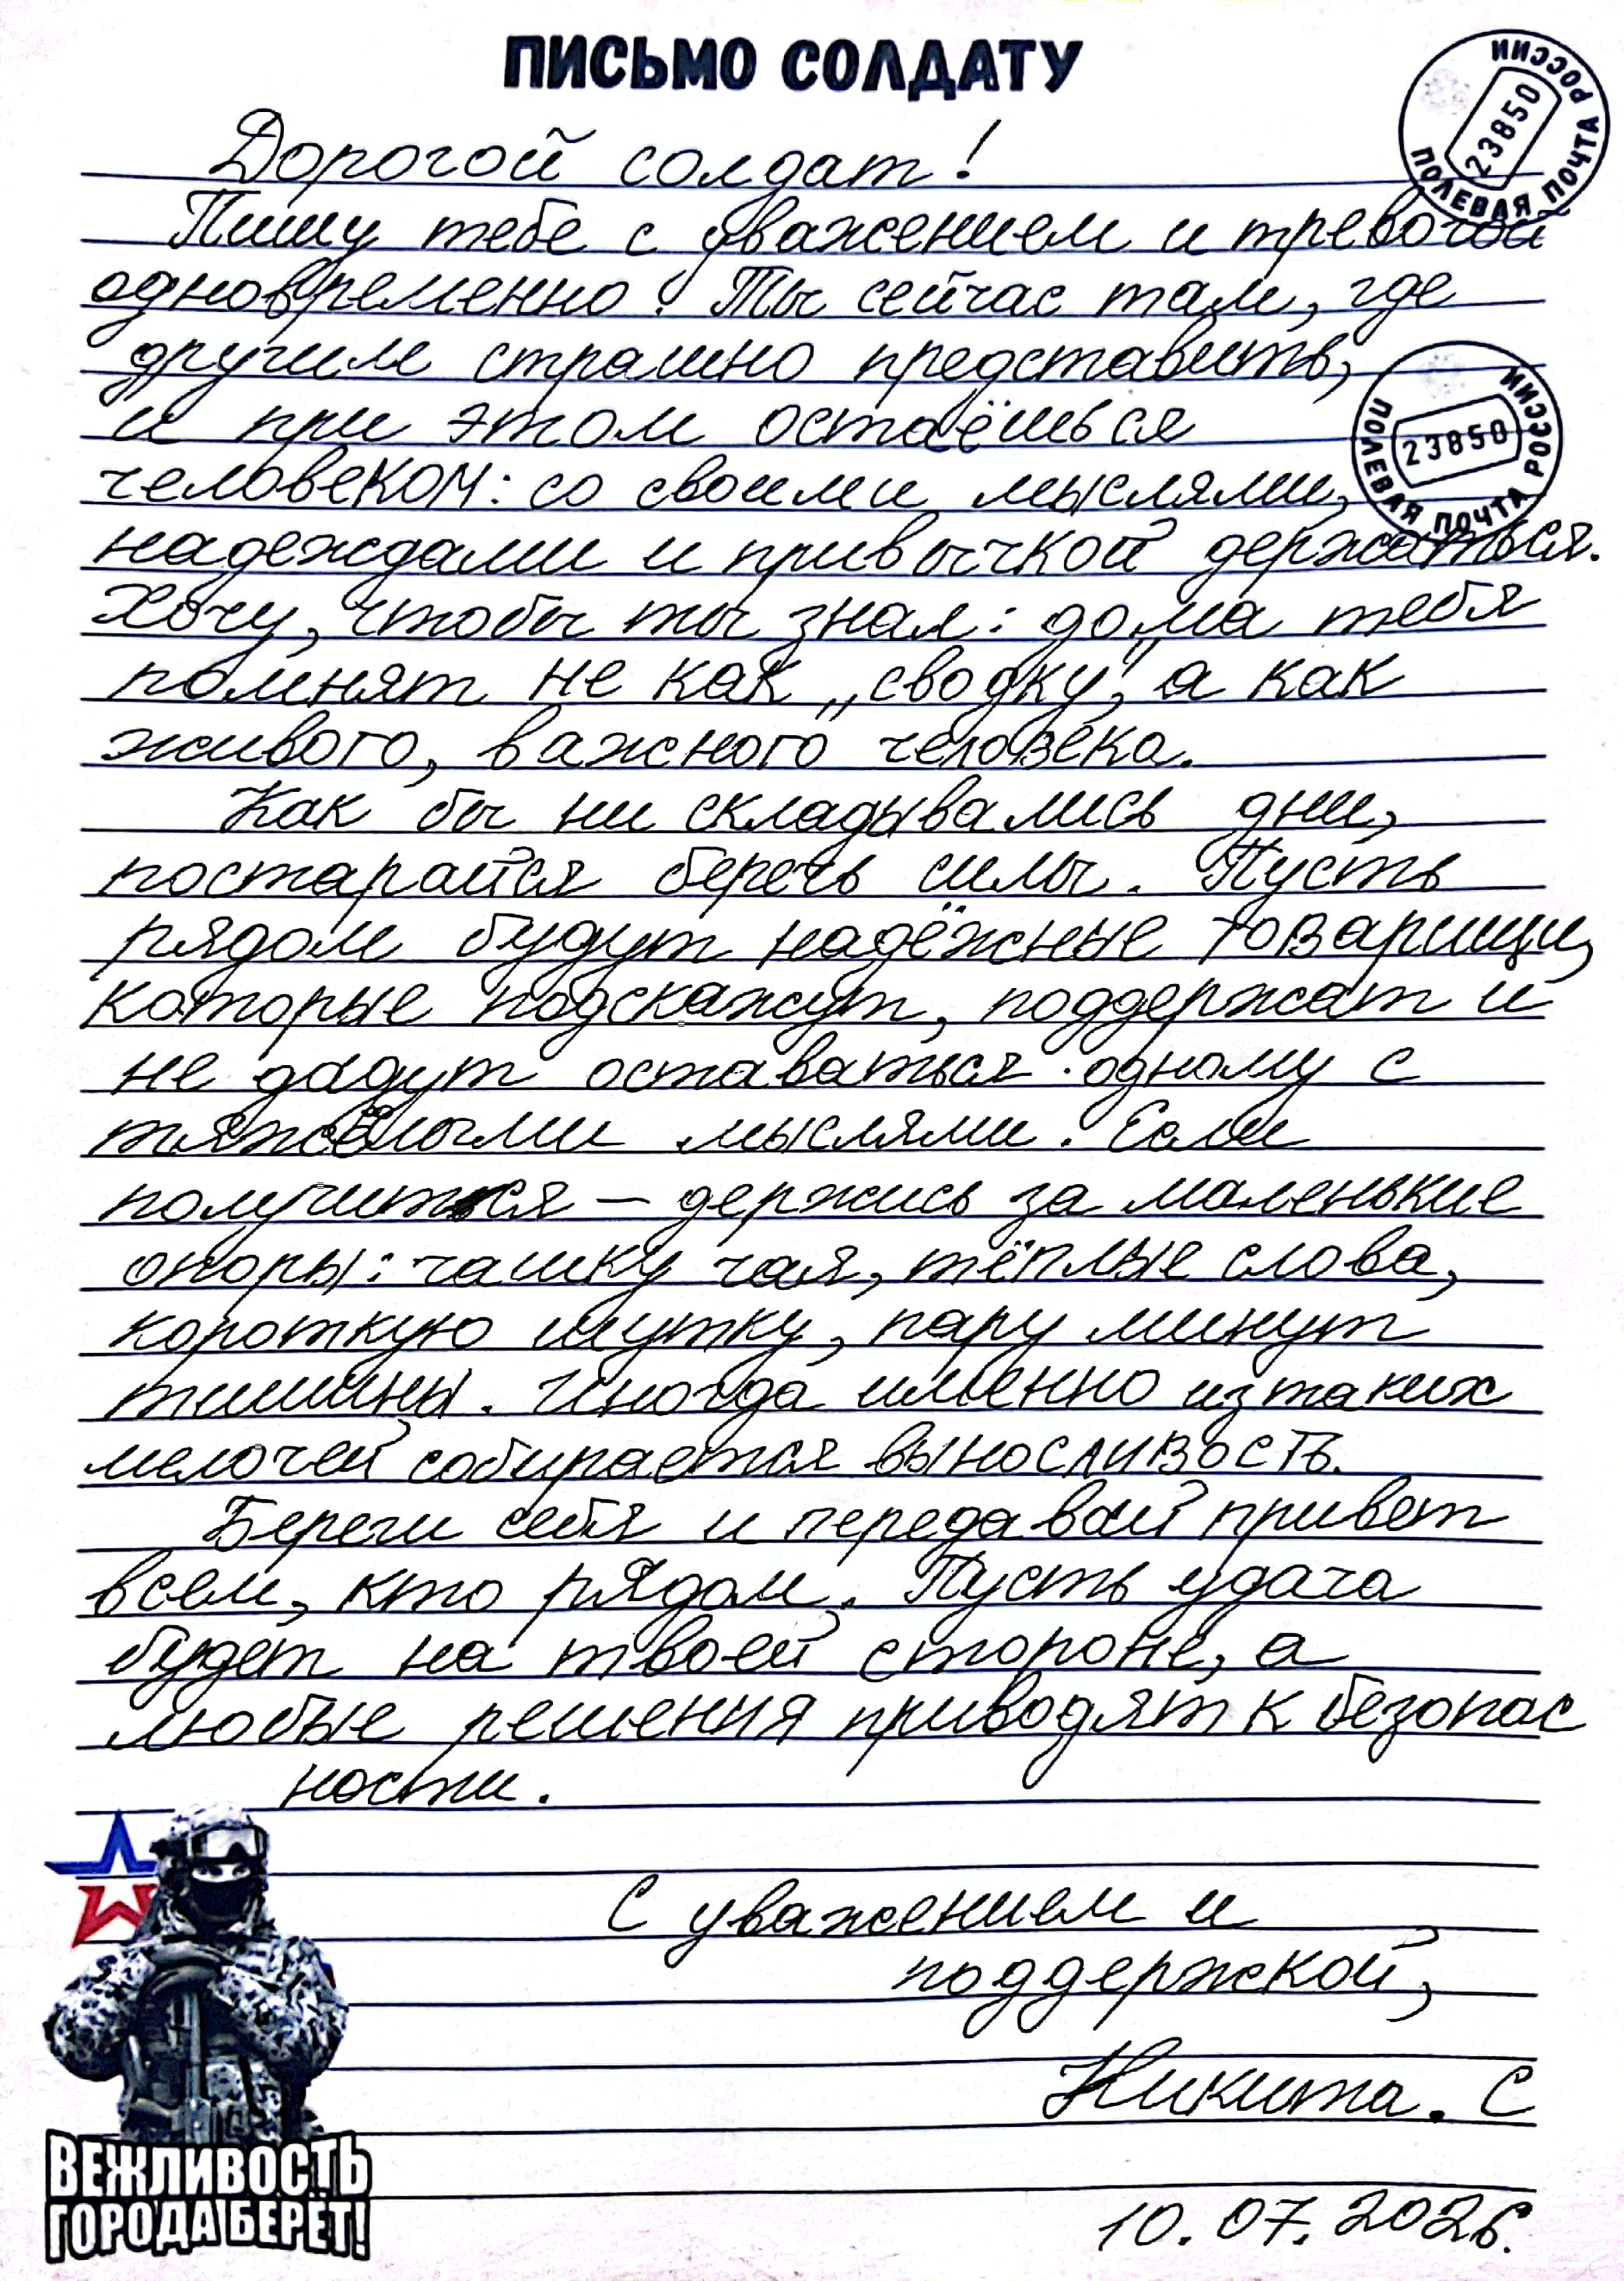 ПИСЬМО СОЛДАТУ
ПОЛЕВАЯ ПОЧТА РОССИИ
23850
Дорогой солдат!
Пишу тебе с уважением и тревогой
одновременно! Ты сейчас там, где
другим страшно представить,
и при этом остаёшься
ПОЛЕВАЯ ПОЧТА РОССИИ
23850
человеком: со своими мыслями,
надеждами и привычкой держаться.
Хочу, чтобы ты знал: дома тебя
помнят не как „сводку", а как
живого, важного человека.
Как бы ни складывались дни,
постарайся беречь силы. Пусть
рядом будут надёжные товарищи,
которые подскажут, поддержат и
не дадут оставаться одному с
тяжёлыми мыслями. Если
получиться – держись за маленькие
опоры: чашку чая, тёплые слова,
короткую шутку, пару минут
тишины. Иногда именно из таких
мелочей собирается выносливость.
Береги себя и передавай привет
всем, кто рядом. Пусть удача
будет на твоей стороне, а
любые решения приводят к безопас
ности.
С уважением и
поддержкой,
Никита. С
ВЕЖЛИВОСТЬ
ГОРОДА БЕРЁТ!
10.07.2026.